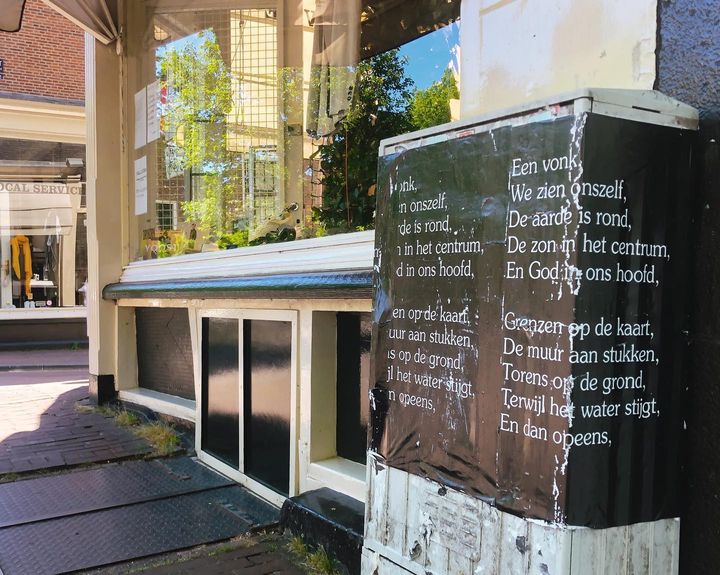 LOCAL SERVICE
onk,
n onszelf,
e is rond,
n in het centrum,
d in ons hoofd,
en op de kaart,
uur aan stukken,
s op de grond,
jl het water stijgt,
n opeens,
Een vonk,
We zien onszelf,
De aarde is rond,
De zon in het centrum,
En God in ons hoofd,
Grenzen op de kaart,
De muur aan stukken,
Torens op de grond,
Terwijl het water stijgt,
En dan opeens,